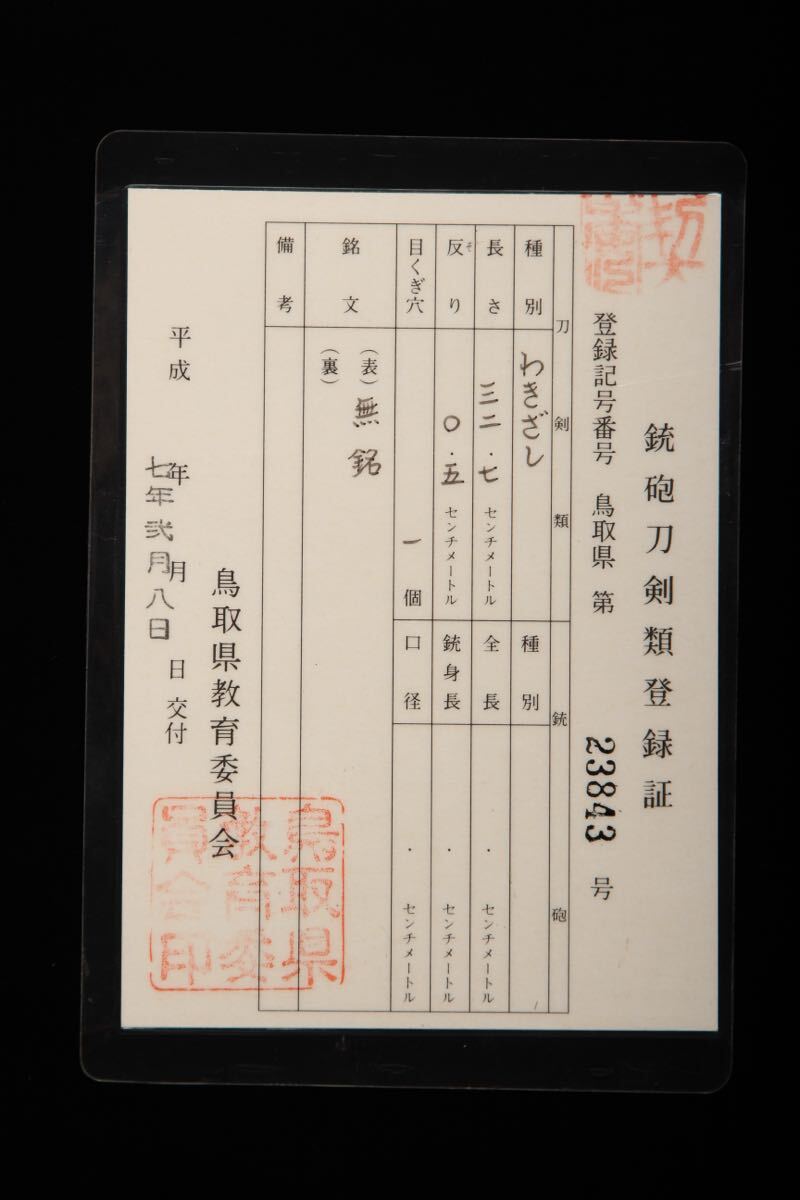 銃砲刀剣類登録証
登録記号番号 鳥取県 第 23843 号
刀剣類
種別 わきざし
長さ 三二・七 センチメートル
反り 〇・五 センチメートル
そ
目くぎ穴 一 個
銘文
(表) 無銘
(裏)
備考
銃砲
種別
全長 ・ センチメートル
銃身長 ・ センチメートル
口径 ・ センチメートル
平成 年 月 日 交付
七年弐月八日
鳥取県教育委員会
鳥取県
教育委
員会印